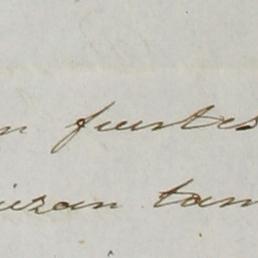 n fuertes
iezan tam